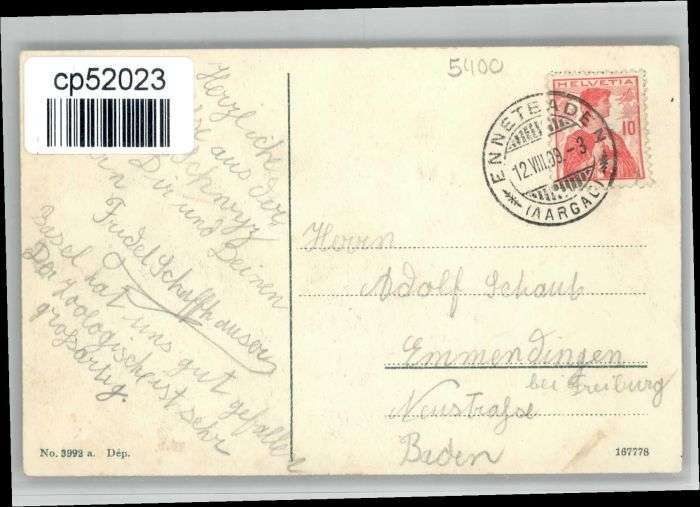 cp52023
5400
HELVETIA
10
ENNETBADEN
12.VIII.09.-3
(AARGAU)
Herzliche
aus der
Schwyz
Dir und Deinen
Fridel Schaffhauser
Basel hat uns gut gefallen
Der Zoologische ist sehr
großartig.
Herrn
Adolf Schaub
Emmendingen
bei Freiburg
Neustraße
Baden
No. 3992 a. Dép.
167778